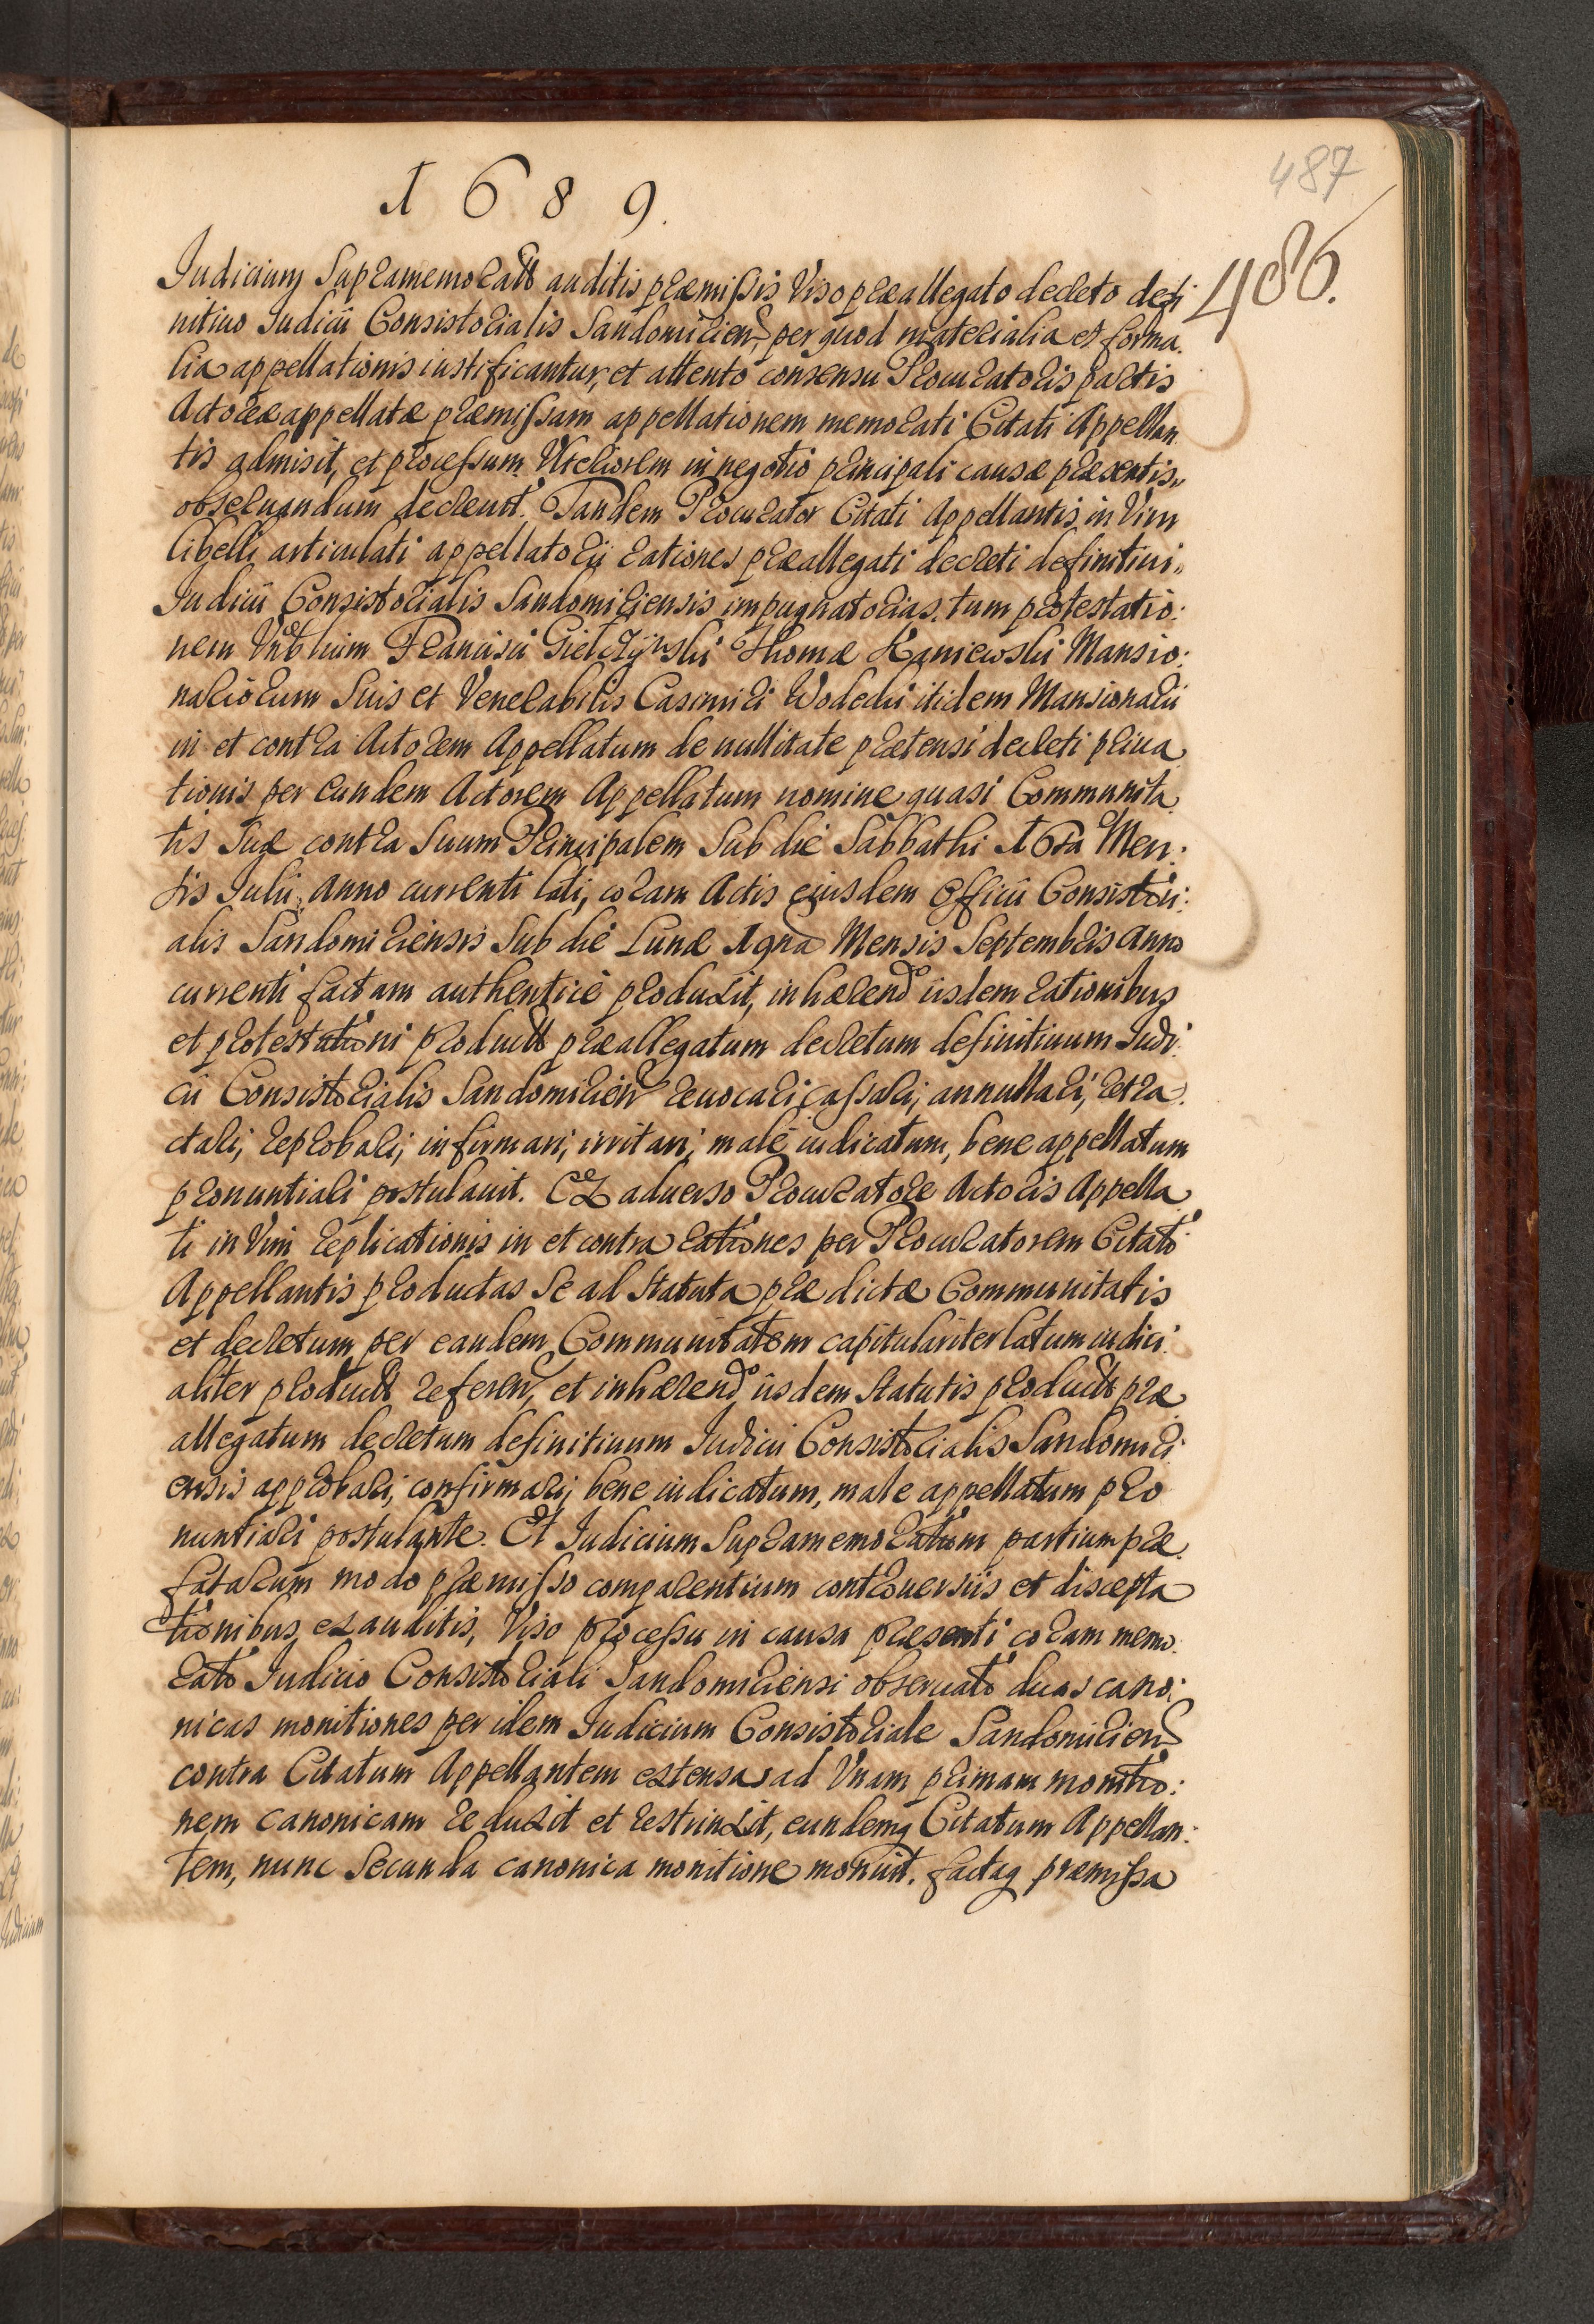 487
1 6 8 9.
486.
Iudicium Supramemoratū auditis præmissis Viso præallegato decreto defi
nitiuo Iudicii Consistorialis Sandomirien, per quod materialia et forma.
lia appellationis iustificantur, et attento consensu Procuratoris partis
Actoreæ appellatæ præmissam appellationem memorati Citati Appellan
tis admisit, et processum Vlteriorem in negotio principali causæ præsentis,,
obseruandum decreuit. Tandem Procurator Citati Appellantis, in Vim
libelli articulati appellatorii rationes præallegati decreti definitiui,,
Iudicii Consistorialis Sandomiriensis impugnatorias, tum protestatio:
nem Vnblium Francisci Thomæ Kaniewski Mansio:
nariorum Suis et Venerabilis Casimiri Wodecki itidem Mansionarii
in et contra Actorem Appellatum de nullitate prætensi decreti priua
tionis per eundem Actorem Appellatum nomine quasi Communita
tis Suæ contra Suum Principalem Sub die Sabbathi 16ta Men:
sis Iulii, anno currenti lati, coram Actis eiusdem Officii Consistori:
alis Sandomiriensis Sub die Lunæ 19na Mensis Septembris Anno
currenti factam authenticè produxit, inhærendo iisdem rationibus
et protestationi productū præallegatum decretum definitiuum Iudi:
cii Consistorialis Sandomirien reuocari, cassari, annullari, retra.
ctari, reprobari, infirmari, irritari, malè iudicatum, bene appellatum
pronuntiari postulauit. Ex aduerso Procuratore Actoris Appella
ti in Vim replicationis in et contra rationes per Procuratorem Citati
Appellantis productas Se ad Statuta prædictæ Communitatis
et decretum per eandem Communitatem capitulariter latum iudici.
aliter productū referen, et inhærendo iisdem Statutis productū præ
allegatum decretum definitiuum Iudicii Consistorialis Sandomiri
ensis approbari, confirmari, bene iudicatum, male appellatum pro
nuntiari postulante. Et Iudicium Supramemoratum partium præ.
fatarum modo præmisso comparentium controuersiis et discepta
tionibus exauditis, Viso processu in causa præsenti coram memo.
rato Iudicio Consistoriali Sandomiriensi obseruato duas cano:
nicas monitiones per idem Iudicium Consistoriale Sandomirien
contra Citatum Appellantem extensas ad Vnam primam monitio:
nem canonicam reduxit et restrinxit, eundemq Citatum Appellan:
tem, nunc Secunda canonica monitione monuit. factaq præmissa